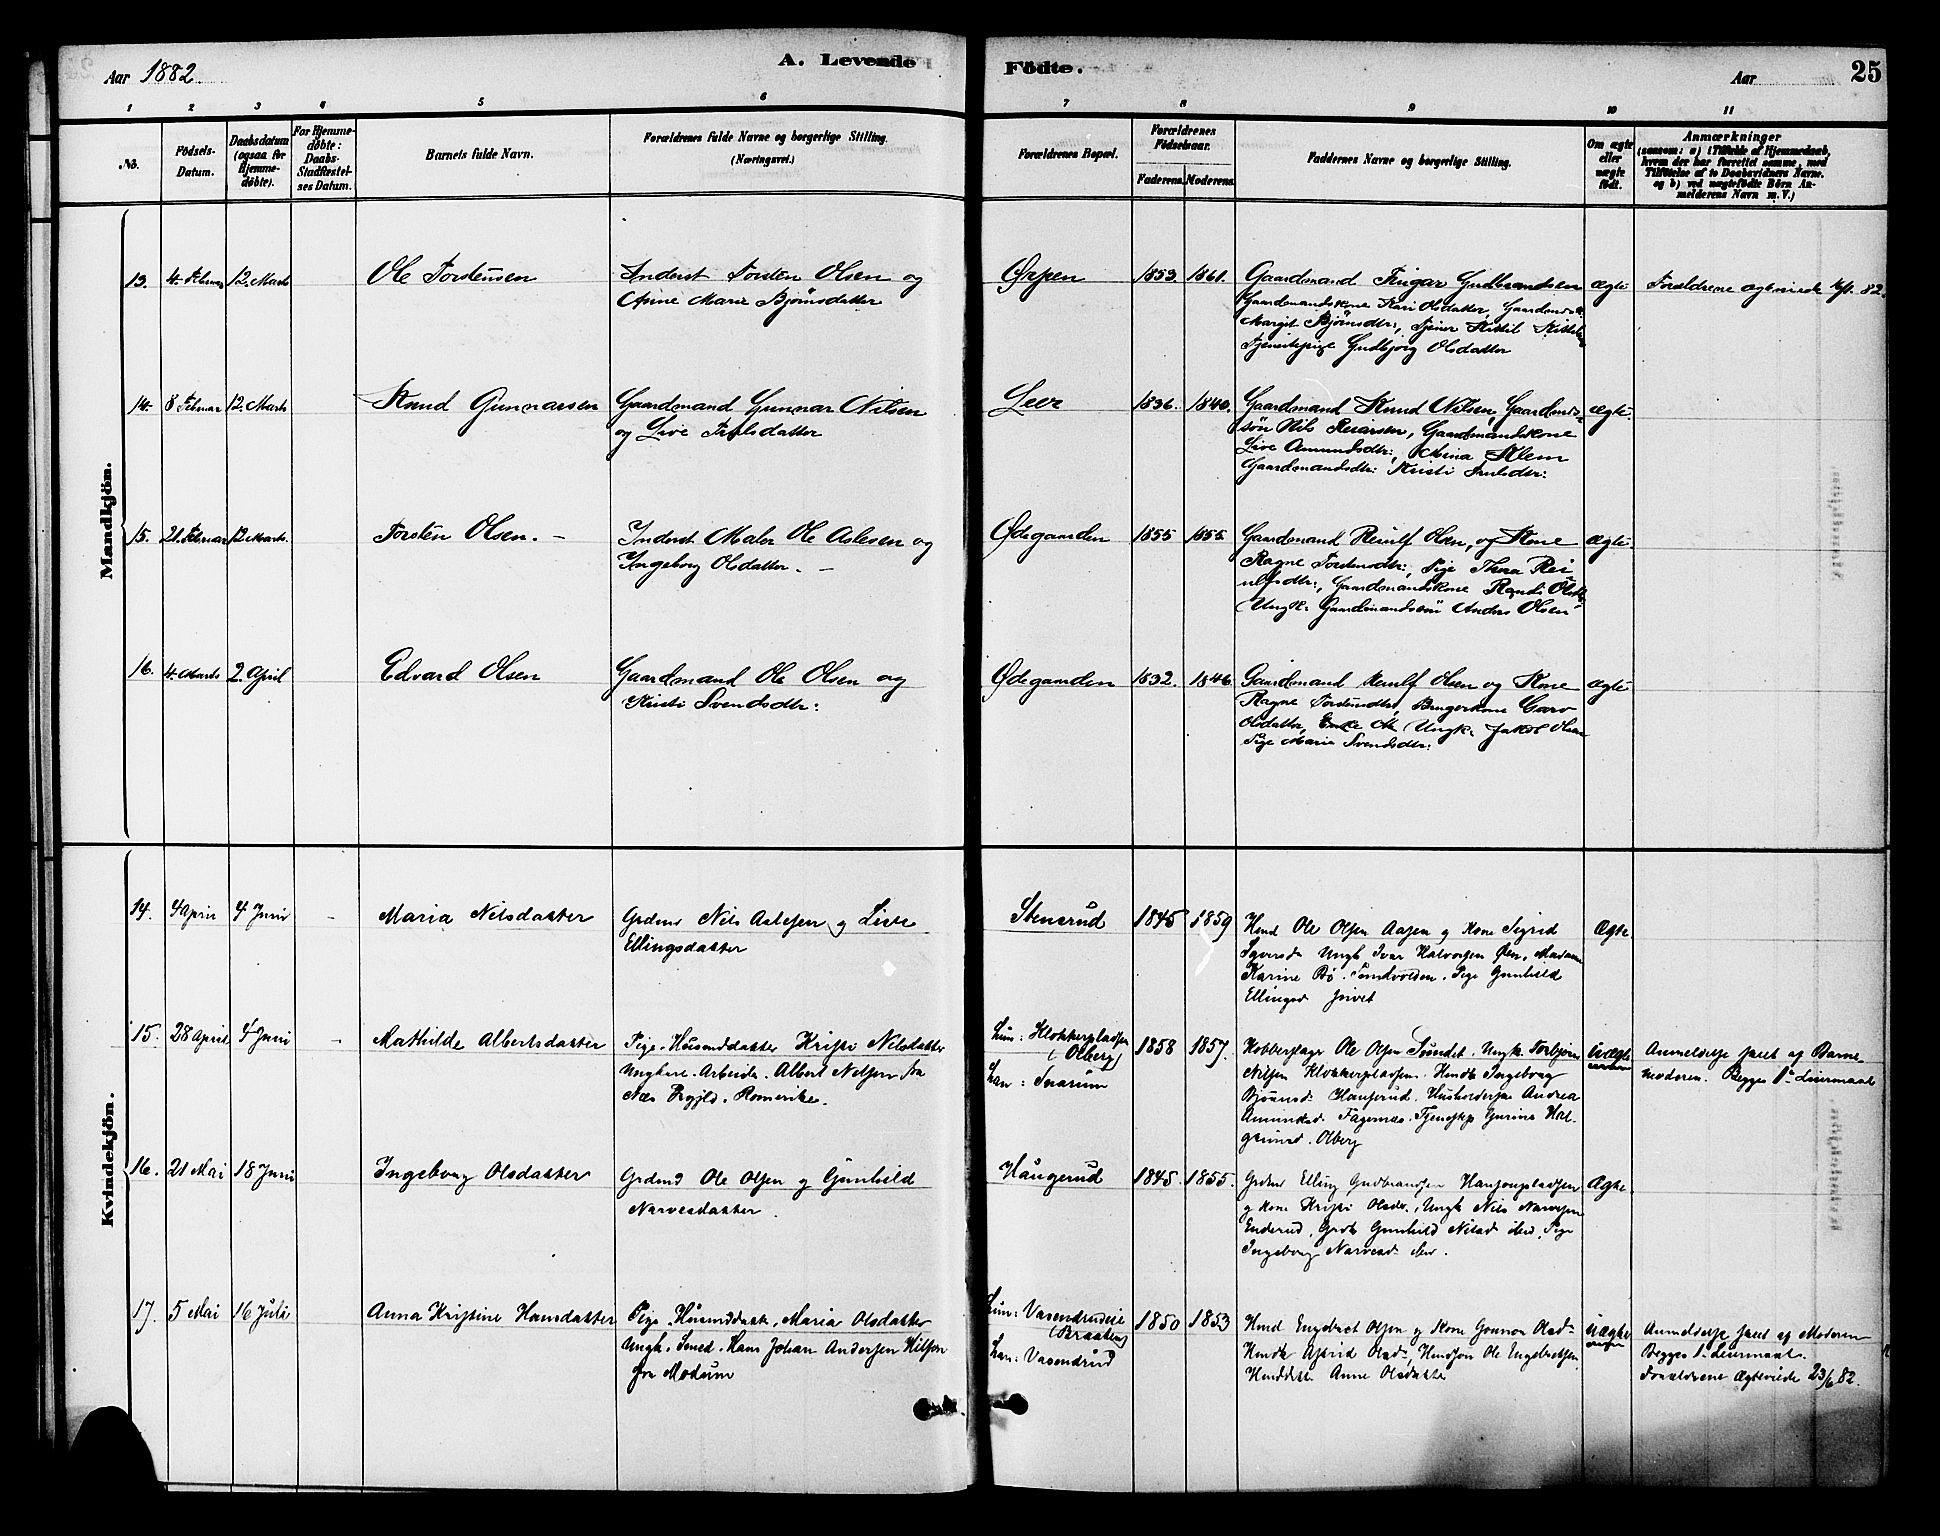 Aar 1882.
A. Levende
Födte.
Aar
25
1 2 3 4 5 6 7 8 9 10 11
No.
Födsels-
Datum.
Daabsdatum
(ogsaa for
Hjemme-
døbte).
For Hjemme-
døbte:
Daabs-
Stadfæstel-
ses Datum.
Barnets fulde Navn.
Forældrenes fulde Navne og borgerlige Stilling.
(Næringsvei.)
Forældrenes Bopæl.
Forældrenes
Födselsaar.
Faderens. Moderens.
Faddernes Navne og borgerlige Stilling.
Om ægte
eller
uægte
født.
Anmærkninger
(saasom: a) i Tilfælde af Hjemmedaab,
hvem der har forrettet samme, med
Tilføielse af to Daabsvidners Navne.
og b) ved uægtefødte Börn An-
melderens Navn m. V.)
Mandkjön.
13. 4. Februar 12. Marts
Ole Torstensen
Inderst Torsten Olsen og
Anne Marie Bjørnsdatter
Ørpen
1853. 1861.
Gaardmand Trugar Gudbrandsen
Gaardmandskone Kari Olsdatter, Gaardmdsk.
Margit Bjørnsdtr:, Tjener Kittil
Tjenestepige Gudbjørg Olsdatter
ægte
Forældrene ægteviede 82.
14. 8 Februar 12. Marts
Knud Gunnarsen
Gaardmand Gunnar Nilsen
og Live Trulsdatter
Leer
1836. 1840.
Gaardmand Knud Nilsen, Gaardmds-
søn Nils, Gaardmandskone
Live Amundsdtr:, Mina Klem
Gaardmandsdtr: Kristi Trulsdtr:
ægte.
15. 21. Februar 12 Marts.
Torsten Olsen. -
Inderst Maler Ole Aslesen og
Ingeborg Olsdatter. -
Ødegaarden
1855 1855.
Gaardmand Reiulf Olsen, og Kone
Ragne Torstensdtr:, Pige Thea Rei
ulfsdtr:, Gaardmandskone Randi Olsdtr
Ungk: Gaardmandssøn Anders Olsen
ægte.
16. 4. Marts 2. April
Edvard Olsen
Gaardmand Ole Olsen og
Kristi Svendsdtr:
Ødegaarden
1832. 1846.
Gaardmand Reiulf Olsen og Kone
Ragne Torstensdtr, Brugerkone Guro
Olsdatter, Ungk: Jakob Olsen
Pige Marie Svendsdtr:
ægte
Kvindekjön.
14. 4 April 4 Juni -
Maria Nilsdatter
Grdmd Nils Aslesen og Live
Ellingsdatter
Stensrud
1845 1859
Hmd Ole Olsen Aasen og Kone Sigrid
Ungk Ivar Halvorsen Øen, Madam
Karine Bö. Sandvolden. Pige Gunhild
Ellingsd
Ægte.
15. 28 April 4 Juni -
Mathilde Albertsdatter
Pige. Husmdsdatter Kristi Nilsdatter
Ungkarl. Arbeider. Albert Nelsen fra
Næs Prgjld. Romerike.
Hun: Klokkerpladsen
(Olberg)
Han: Snarum
1858 1857.
Kobberslager Ole Olsen Sundet. Ungk. Torbjørn
Nilsen Klokkerpladsen. Hmdk Ingeborg
Bjørnsd Haugerud. Husholderske Andrea
Amundsd Fagernæs. Tjenestep Gurine Hal-
grimsd. Olberg
Uægte
Anmeldelse skeet af Barne-
moderen. Begges 1ste Leiermaal
16. 21 Mai 18 Juni
Ingeborg Olsdatter
Grdmd Ole Olsen og Gunhild
Narvesdatter.
Haugerud
1845. 1855.
Grdmd Elling Gudbrandsen Hansonpladsen
og Kone Kristi Olsdtr., Ungk Nils Narvesen
Enderud, Grdk Gunhild Nilsd ibid, Pige
Ingeborg Narvesd ibid.
Ægte.
17. 5 Mai 16 Juli
Anna Kristine Hansdatter
Pige. Husmdsdatter, Maria Olsdatter
Ungk. Smed. Hans Johan Andersen Hilsen
fra Modum
Hun: Vasendrudeie
(Braaten)
Han: Vasendrud
1850 1853
Hmd Engebret Olsen og Kone Gunnor Olsd-
Hmdk Astrid Olsd-, Hmdsøn Ole Engebretsen
Hmddatt. Anne Olsdatter
Uægte
Anmeldelse skeet af Moderen
Begges 1ste Leiermaal.
Forældrene Ægteviede 23/6 82.